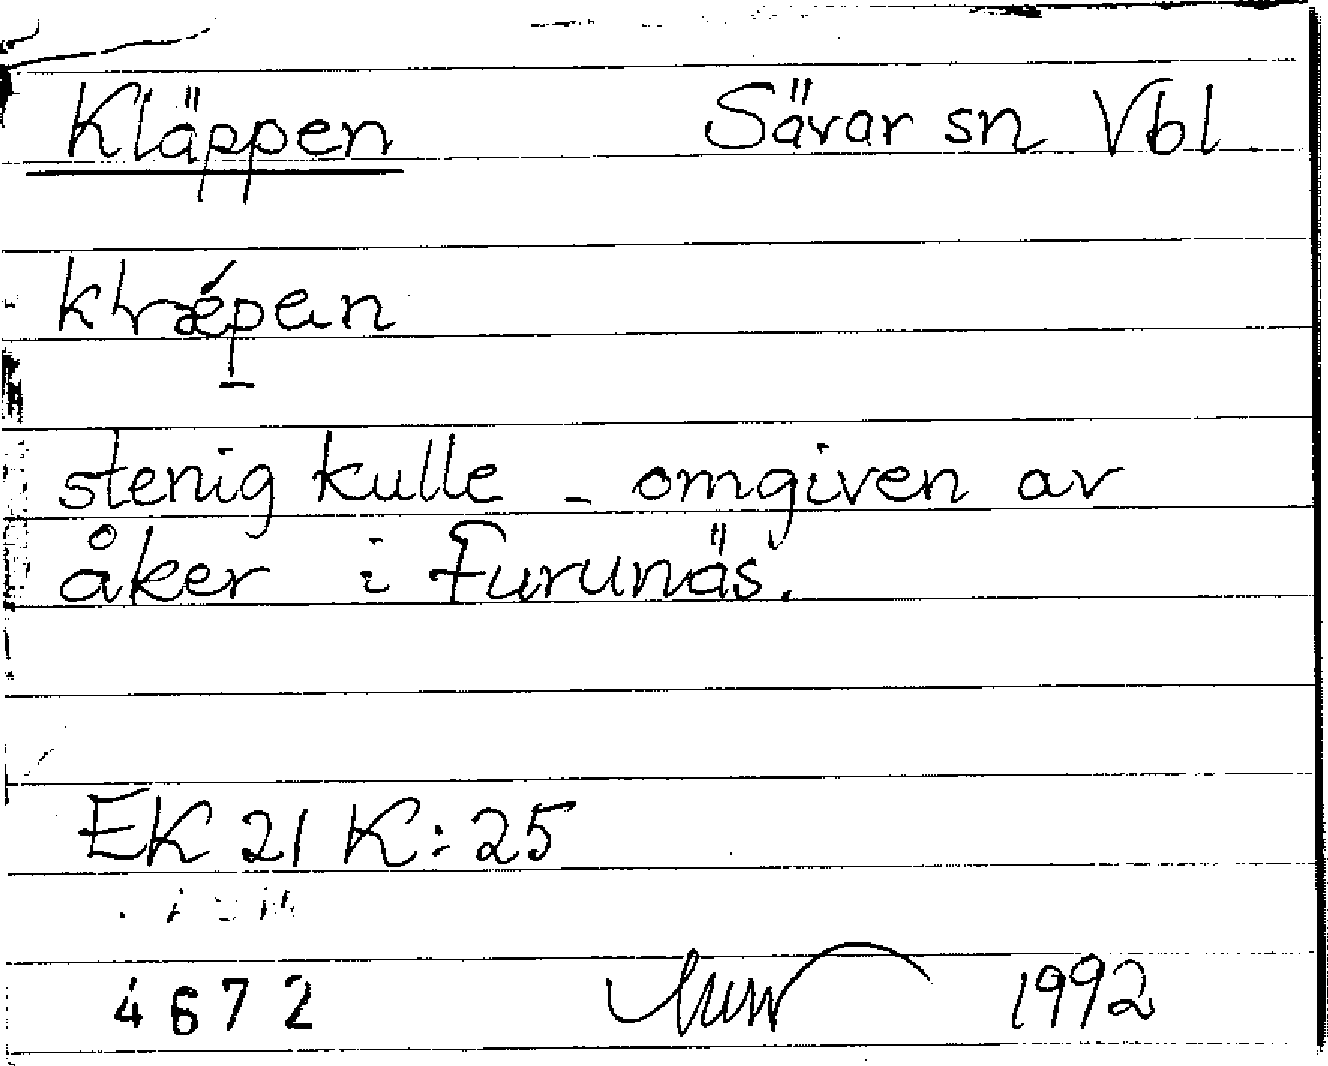 Kläppen Sävar sn Vbl
stenig kulle - omgiven av
åker i Furunäs.
EK 21 K:25
4672 1992